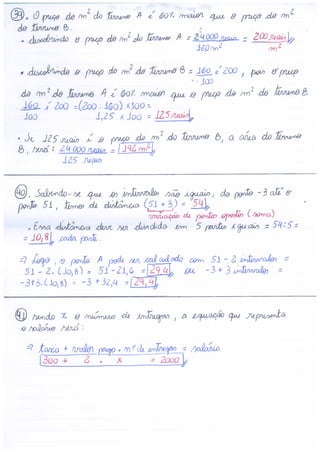 39. O preço do m² do terreno A é 60% maior que o preço do m²
do terreno B.
• descobrindo o preço do m² do terreno A = 24000 reais = 200 reais
120 m² m²
• descobrindo o preço do m² do terreno B = 160 = 200, pois o preço
100
do m² do terreno A é 60% maior que o preço do m² do terreno B.
160 = 200 = (200 : 160) × 100 =
100 1,25 × 100 = 125 reais
• Se 125 reais é o preço do m² do terreno B, a área do terreno
B, será: 24.000 reais = 192 m²
125 reais
40. Sabendo-se que os intervalos são iguais, do ponto -3 até o
ponto 51, temos de distância (51 + 3) = 54
variação de pontos opostos (soma)
• Essa distância deve ser dividida em 5 partes iguais = 54:5 =
= 10,8 cada parte.
⇒ Logo, o ponto A pode ser calculado com 51 - 2 intervalos =
51 - 2.(10,8) = 51 - 21,6 = 29,4 ou -3 + 3 intervalos =
-3+3.(10,8) = -3 + 32,4 = 29,4
41. Sendo x o número de entregas, a equação que representa
o salário será:
⇒ taxa + valor pago . nº de entregas = salário
300 + 2 . x = 2000